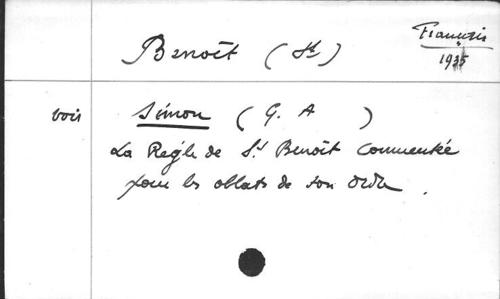 Benoît (St)
Français
1935
voir Simon (G. A )
La Règle de St Benoît commentée
pour les oblats de son Ordre.